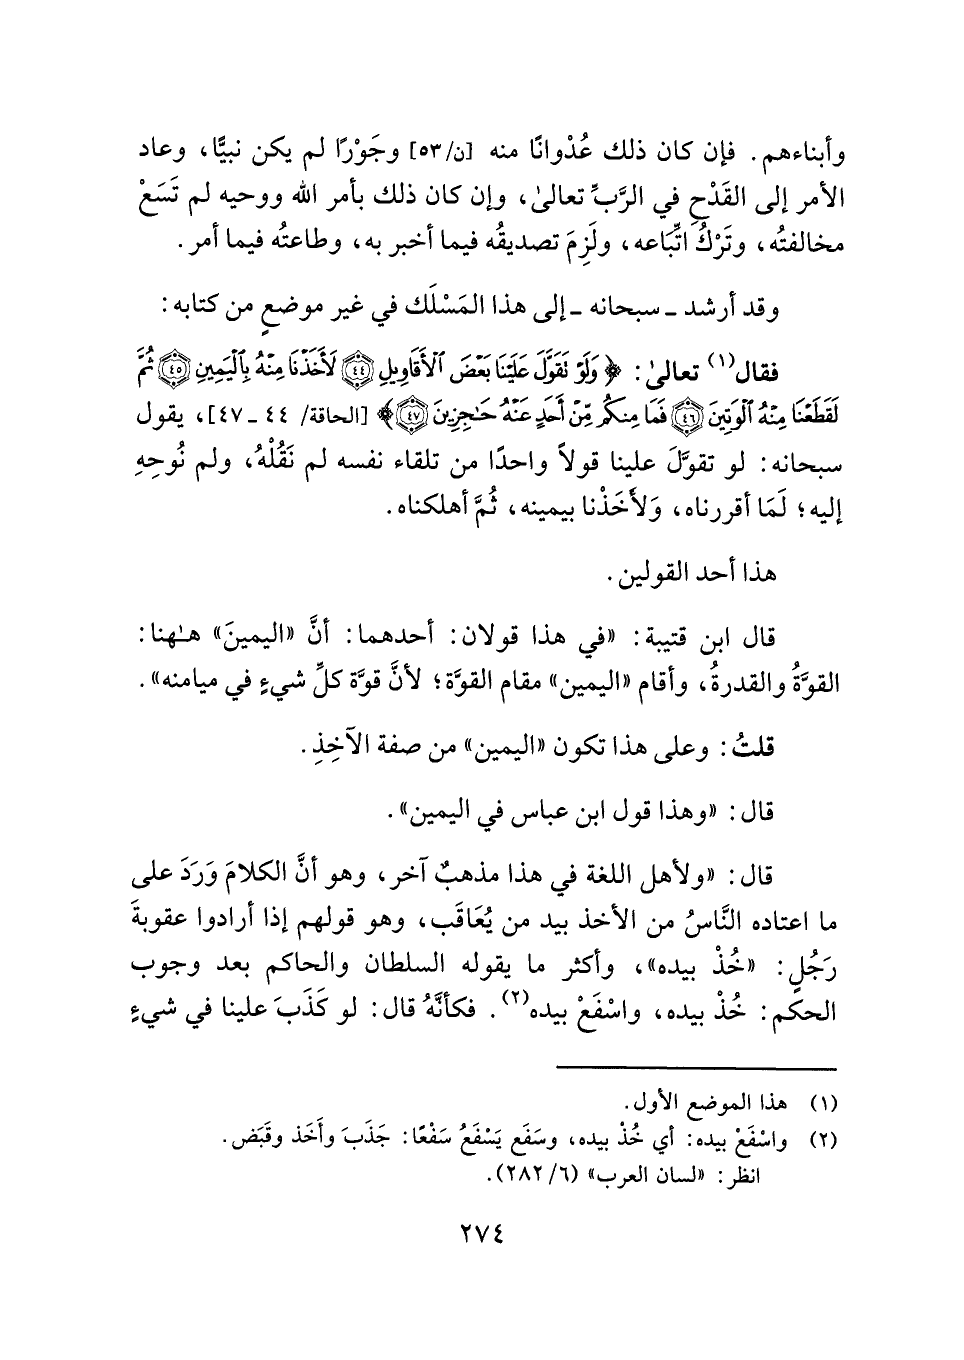 وأبناءهم. فإن كان ذلك عُدْوانًا منه [ن/٥٣] وجَوْرًا لم يكن نبيًّا، وعاد
الأمر إلى القَدْحِ في الرَّبِّ تعالىٰ، وإن كان ذلك بأمر الله ووحيه لم تَسَعْ
مخالفتُه، وتَرْكُ اتِّبَاعه، ولَزِمَ تصديقُه فيما أخبر به، وطاعتُه فيما أمر.
وقد أرشد ـ سبحانه ـ إلى هذا المَسْلَك في غير موضعٍ من كتابه:
فقال(١) تعالىٰ: ﴿وَلَوْ نَقَوَّلَ عَلَيْنَا بَعْضَ ٱلْأَقَاوِيلِ ٤٤ لَأَخَذْنَا مِنْهُ بِٱلْيَمِينِ ٤٥ ثُمَّ
لَقَطَعْنَا مِنْهُ ٱلْوَتِينَ ٤٦ فَمَا مِنكُم مِّنْ أَحَدٍ عَنْهُ حَٰجِزِينَ ٤٧﴾ [الحاقة/ ٤٤ ـ ٤٧]، يقول
سبحانه: لو تقوَّلَ علينا قولاً واحدًا من تلقاء نفسه لم نَقُلْهُ، ولم نُوحِهِ
إليه؛ لَمَا أقررناه، وَلأَخَذْنا بيمينه، ثُمَّ أهلكناه.
هذا أحد القولين.
قال ابن قتيبة: «في هذا قولان: أحدهما: أنَّ «اليمينَ» هـٰهنا:
القوَّةُ والقدرةُ، وأقام «اليمين» مقام القوَّة؛ لأنَّ قوَّة كلِّ شيءٍ في ميامنه».
قلتُ: وعلى هذا تكون «اليمين» من صفة الآخِذِ.
قال: «وهذا قول ابن عباس في اليمين».
قال: «ولأهل اللغة في هذا مذهبٌ آخر، وهو أنَّ الكلامَ وَرَدَ على
ما اعتاده النَّاسُ من الأخذ بيد من يُعَاقَب، وهو قولهم إذا أرادوا عقوبةَ
رَجُلٍ: «خُذْ بيده»، وأكثر ما يقوله السلطان والحاكم بعد وجوب
الحكم: خُذْ بيده، واسْفَعْ بيده(٢). فكأنَّهُ قال: لو كَذَبَ علينا في شيءٍ
(١) هذا الموضع الأول.
(٢) واسْفَعْ بيده: أي خُذْ بيده، وسَفَع يَسْفَعُ سَفْعًا: جَذَبَ وأَخَذ وقَبَض.
انظر: «لسان العرب» (٦/ ٢٨٢).
٢٧٤